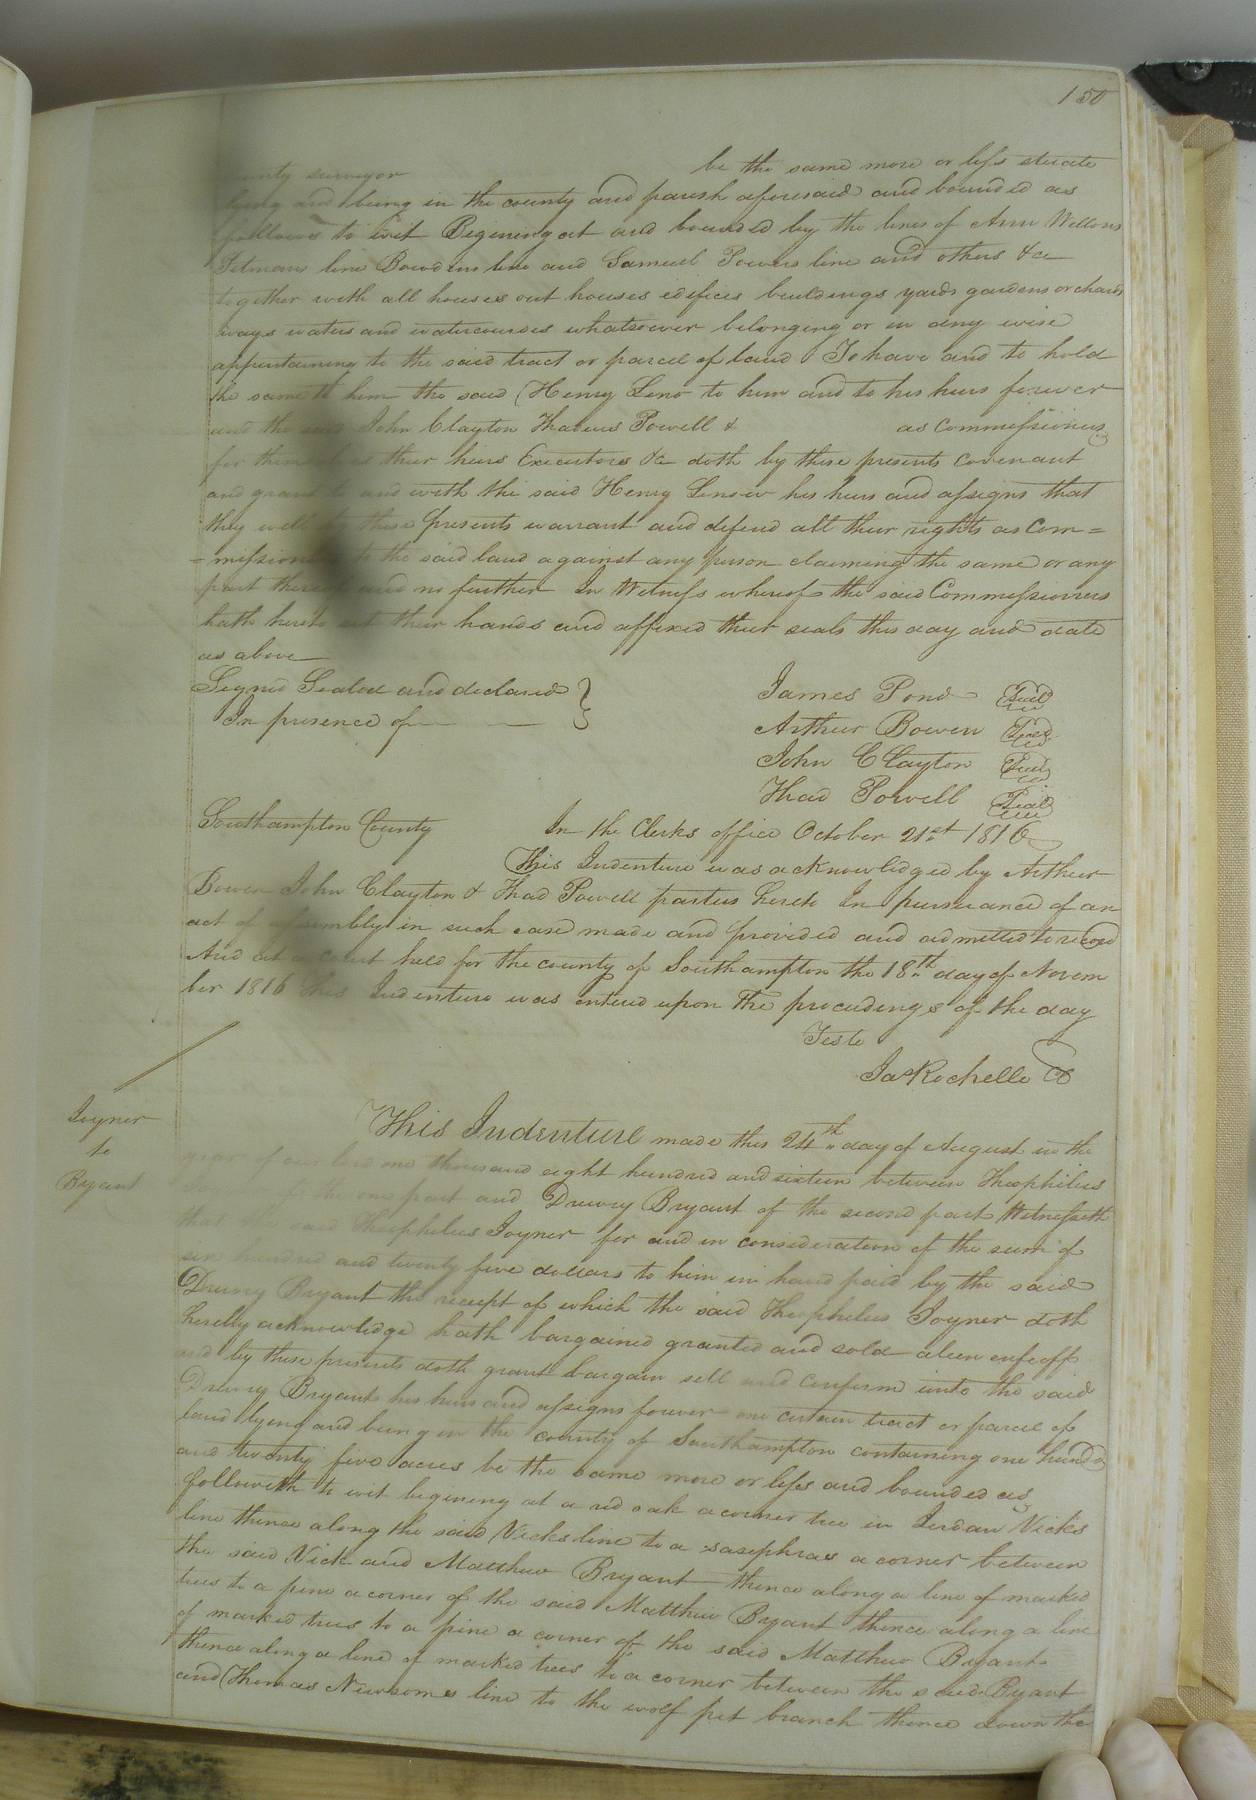 150
surveyor be the same more or less situate
lying and being in the county and parish aforesaid and bounded as
follows to wit Begining at and bounded by the lines of Ann Wellons
line Bowdens line and Samuel Powers line and others &c
together with all houses out houses edifices buildings yards gardens orchards
ways waters and watercourses whatsoever belonging or in any wise
appertaining to the said tract or parcel of land To have and to hold
the same to him the said Henry to him and to his heirs forever
and the said John Clayton Thadeus Powell & as Commissioners
for themselves their heirs Executors &c doth by these presents covenant
and grant to and with the said Henry his heirs and assigns that
they will by these presents warrant and defend all their rights as Com=
=missioners to the said land against any person claiming the same or any
part thereof and no further In Witness whereof the said Commissioners
hath hereto set their hands and affixed their seals this day and date
as above
Signd Sealed and declared
In presence of
James Pond Seal
Arthur Bowen Seal
John Clayton Seal
Thad Powell Seal
Southampton County In the Clerks office October 21st 1816
This Indenture was acknowledged by Arthur
Bowen John Clayton & Thad Powell parties hereto In persuance of an
act of assembly in such case made and provided and admitted to record
And at a court held for the county of Southampton the 18th day of Novem
ber 1816 this Indenture was entered upon the proceedings of the day
Teste
Ja Rochelle
Joyner
to
Bryant
This Indenture made this 24th day of August in the
year of our lord one thousand eight hundred and sixteen between Theophilus
of the one part and Drewry Bryant of the second part Witnesseth
that the said Theophilus Joyner for and in consideration of the sum of
hundred and twenty five dollars to him in hand paid by the said
Drewry Bryant the receipt of which the said Theophilus Joyner doth
hereby acknowledge hath bargained granted and sold alien enfeoff
and by these presents doth grant bargain sell and confirm unto the said
Drewry Bryant his heirs and assigns forever one certain tract or parcel of
land lying and being in the county of Southampton containing one hund
and twenty five acres be the same more or less and bounded as
followeth to wit begining at a red oak a corner tree in Jordan Vick's
line thence along the said Vicks line to a sasephras a corner between
the said Vick and Matthew Bryant thence along a line of marked
trees to a pine a corner of the said Matthew Bryant thence along a line
of marked trees to a pine a corner of the said Matthew Bryant
thence along a line of marked trees to a corner between the said Bryant
and Thomas Newsoms line to the wolf pit branch thence down the